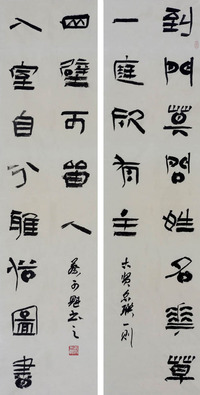 到門莫問姓名華草
一庭欣有主
聯一則
入室自分雅俗圖書
四壁可留人